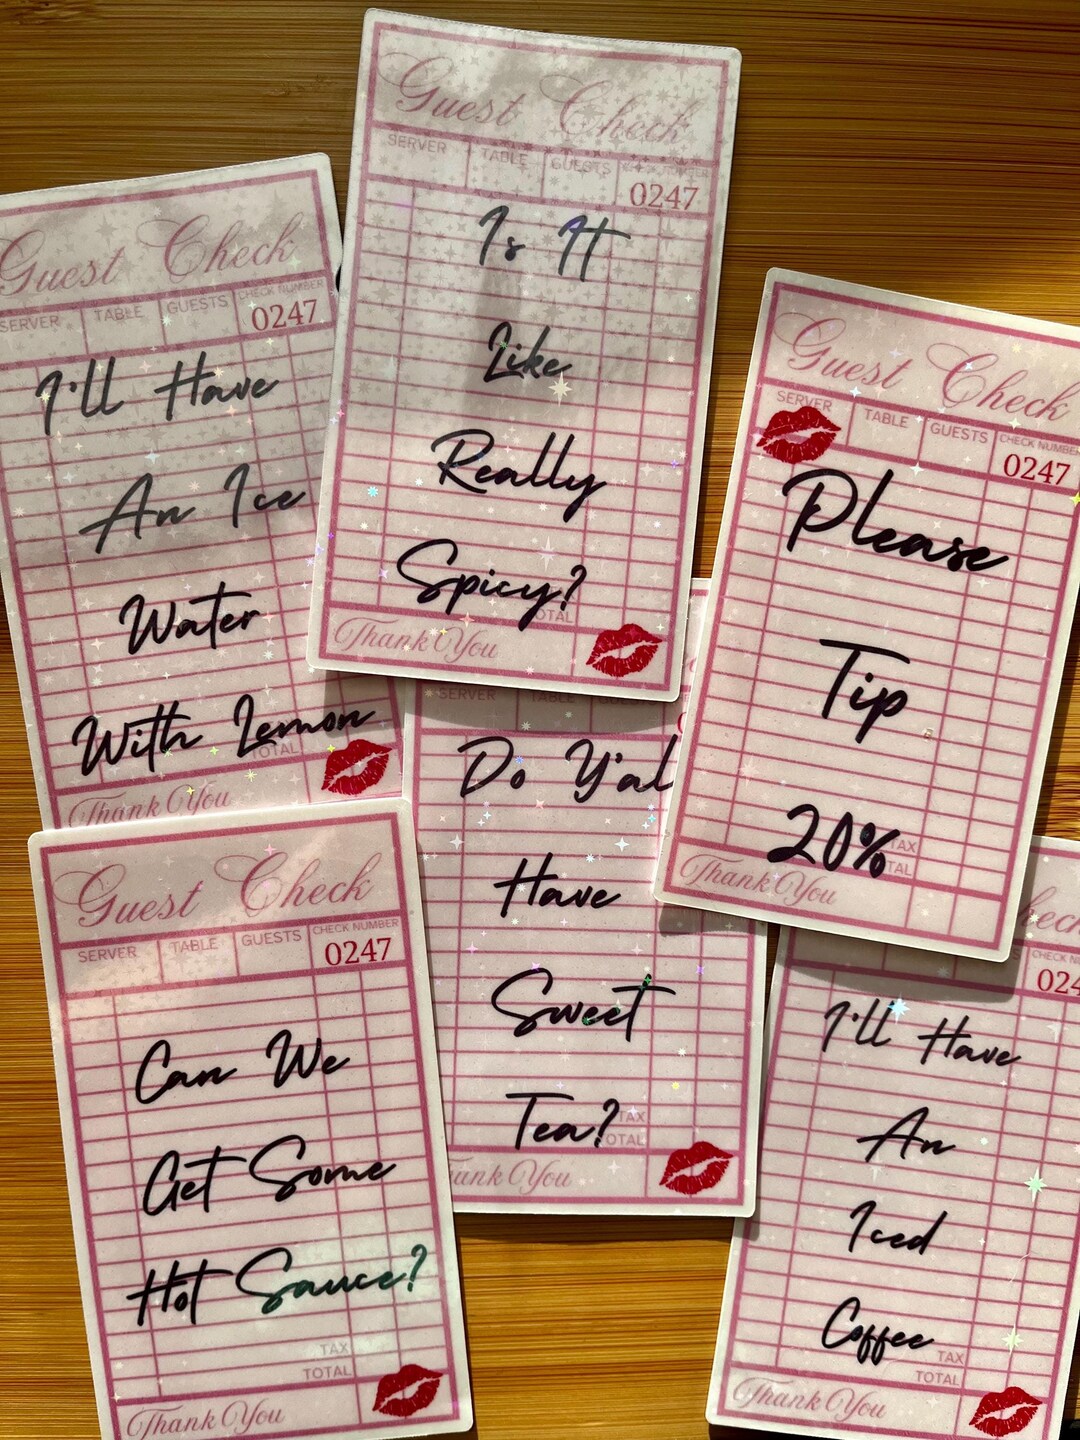 Guest Check
SERVER TABLE GUESTS CHECK NUMBER
0247
Is It
Like
Really
Spicy?
TOTAL
Thank You
Guest Check
SERVER TABLE GUESTS CHECK NUMBER
0247
I'll Have
An Ice
Water
With Lemon
TOTAL
Thank You
Guest Check
SERVER TABLE GUESTS CHECK NUMBER
0247
Please
Tip
20%
TAX
TAL
Thank You
SERVER TABLE
Do Y'al
Have
Sweet
Tea?
TAX
OTAL
ank You
Guest Check
SERVER TABLE GUESTS CHECK NUMBER
0247
Can We
Get Some
Hot Sauce?
TAX
TOTAL
Thank You
024
I'll Have
An
Iced
Coffee
TAX
TOTAL
Thank You